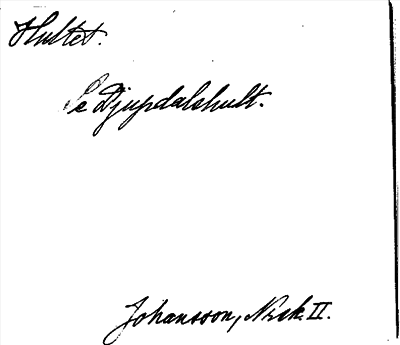 Hultet.
Se Djupdalshult.
Johansson, Nisk. II.